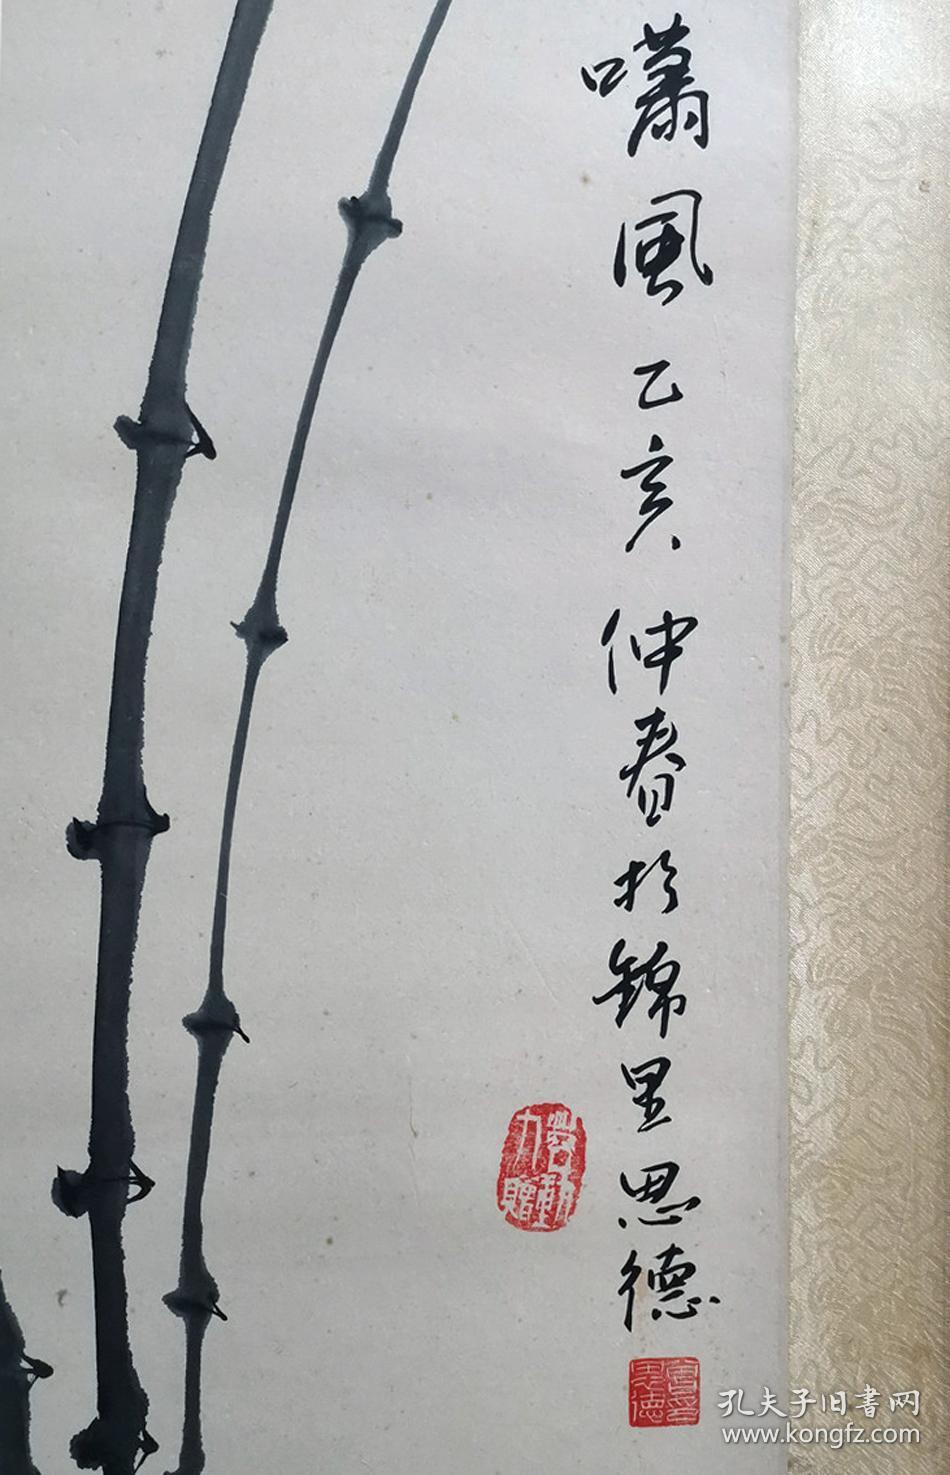 嘯風乙亥仲春於錦里思德
孔夫子旧书网
www.kongfz.com